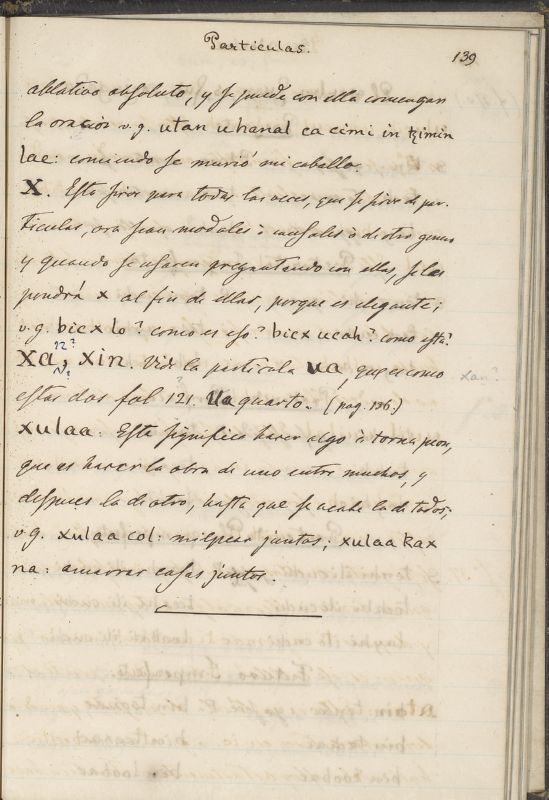 Particulas.
139
ablativo absoluto, y se puede con ella comenzar
la oracion v.g. utan uhanal ca cimi in tzimin
lae: comiendo se murió mi caballo.
X. Esta sirve para todas las veces, que se sirve de par-
ticulas, ora sean modales ò causales ò de otro genero
y quando se usaren preguntando con ellas, se les
pondrá x al fin de ellas, porque es elegante;
v.g. bicx lo? como es eso? bicx ucah? como esta?
12?
xa, xin. Vide la particula ua, que es como
xan?
estas dos fol 121. Ua quarto. (pag. 136.)
xulaa. Este significa hacer algo à torna peon,
que es hacer la obra de uno entre muchos, y
despues la de otro, hasta que se acabe la de todos;
v.g. xulaa col: milpear juntos; xulaa kax
na: amarrar casas juntos.